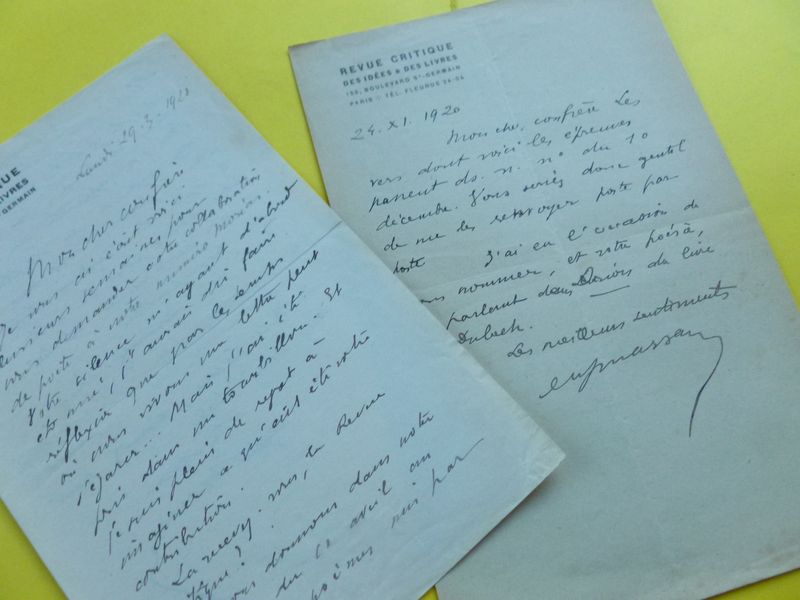 UE
LIVRES
GERMAIN
Lundi 29.3.1920
Mon cher confrère
Je vous ai écrit voici
plusieurs semaines pour
vous demander votre collaboration
de poète à notre numéro Moréas.
Votre silence m'ayant d'abord
étonné, j'aurais dû faire
réflexion que par les temps
où nous vivons une lettre peut
s'égarer... Mais j'ai été
pris dans un tourbillon. Et
je suis plein de regret à
imaginer ce qu'eût été votre
contribution.
La recevez-vous, la Revue
critique?
vous donnons dans notre
du 10 avril un
poèmes mis par
REVUE CRITIQUE
DES IDÉES & DES LIVRES
155, BOULEVARD ST-GERMAIN
PARIS - TÉL. FLEURUS
24.XI.1920
Mon cher confrère Les
vers dont voici les épreuves
passent ds. n. n° du 10
décembre. Vous seriez donc gentil
de me les renvoyer poste par
poste
J'ai eu l'occasion de
vous nommer, et votre poésie,
parlant dans du livre
Dubech.
Les meilleurs sentiments